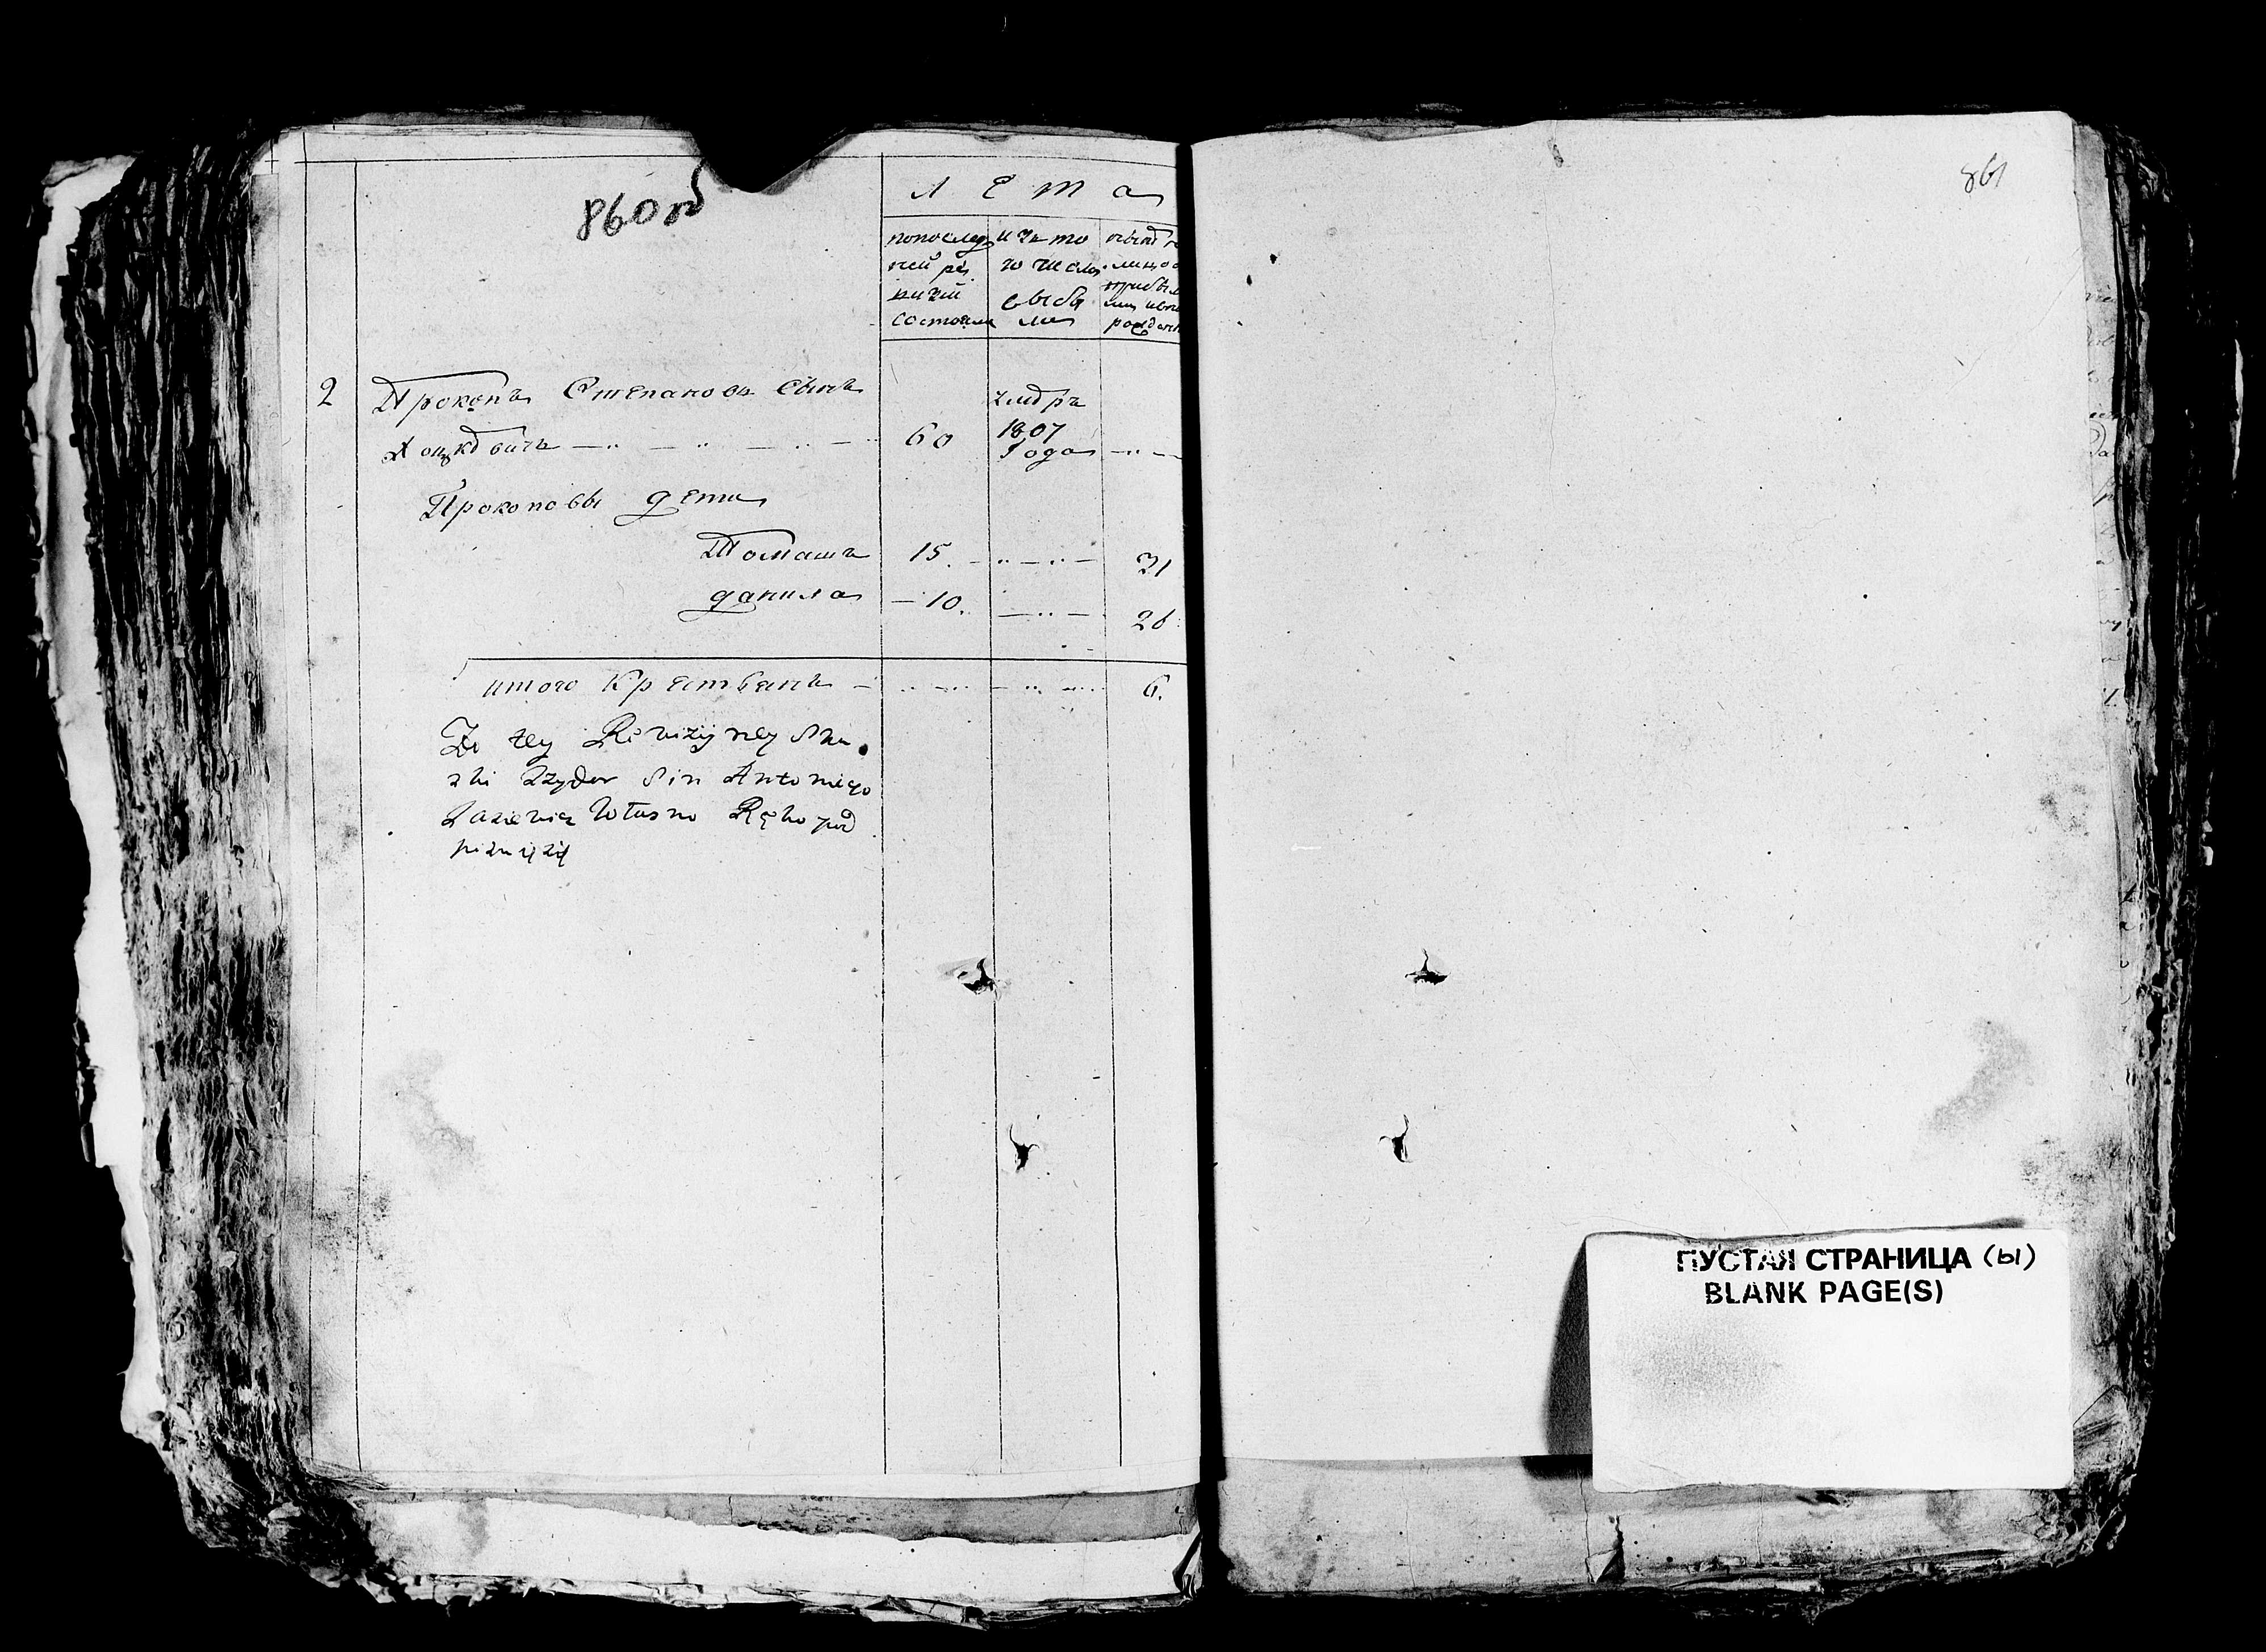 860 об
лета
попослед
ней ре
визи
состояли
изъ то
го числа
выбы
ли
2 Прокопъ Степановъ Сынъ
60
умеръ
1807
Года
Прокоповы дети
Томашъ 15. 21
данила 10. 26
итого Крестьянъ 6.
Do tey Rewizyiney Ska
zki Izydor Sin Antoniego
własno Ręko pod
861
ПУСТАЯ СТРАНИЦА (Ы)
BLANK PAGE(S)